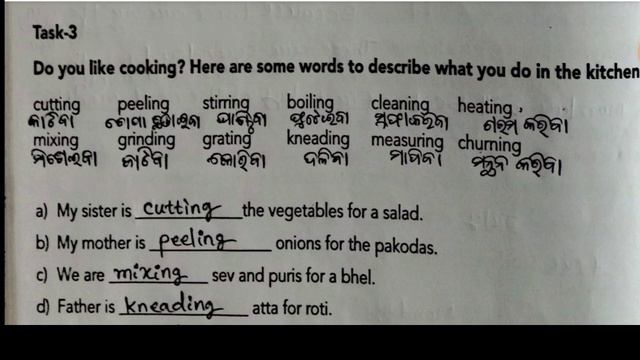 Task-3
Do you like cooking? Here are some words to describe what you do in the kitchen
cutting peeling stirring boiling cleaning heating
କାଟିବା ଚୋପା ଛଡାଇବା ଘାଣ୍ଟିବା ଫୁଟାଇବା ସଫାକରିବା ଗରମ କରିବା
mixing grinding grating kneading measuring churning
ମିଶାଇବା ବାଟିବା କୋରିବା ଦଳିବା ମାପିବା ମନ୍ଥନ କରିବା
a) My sister is cutting the vegetables for a salad.
b) My mother is peeling onions for the pakodas.
c) We are mixing sev and puris for a bhel.
d) Father is kneading atta for roti.